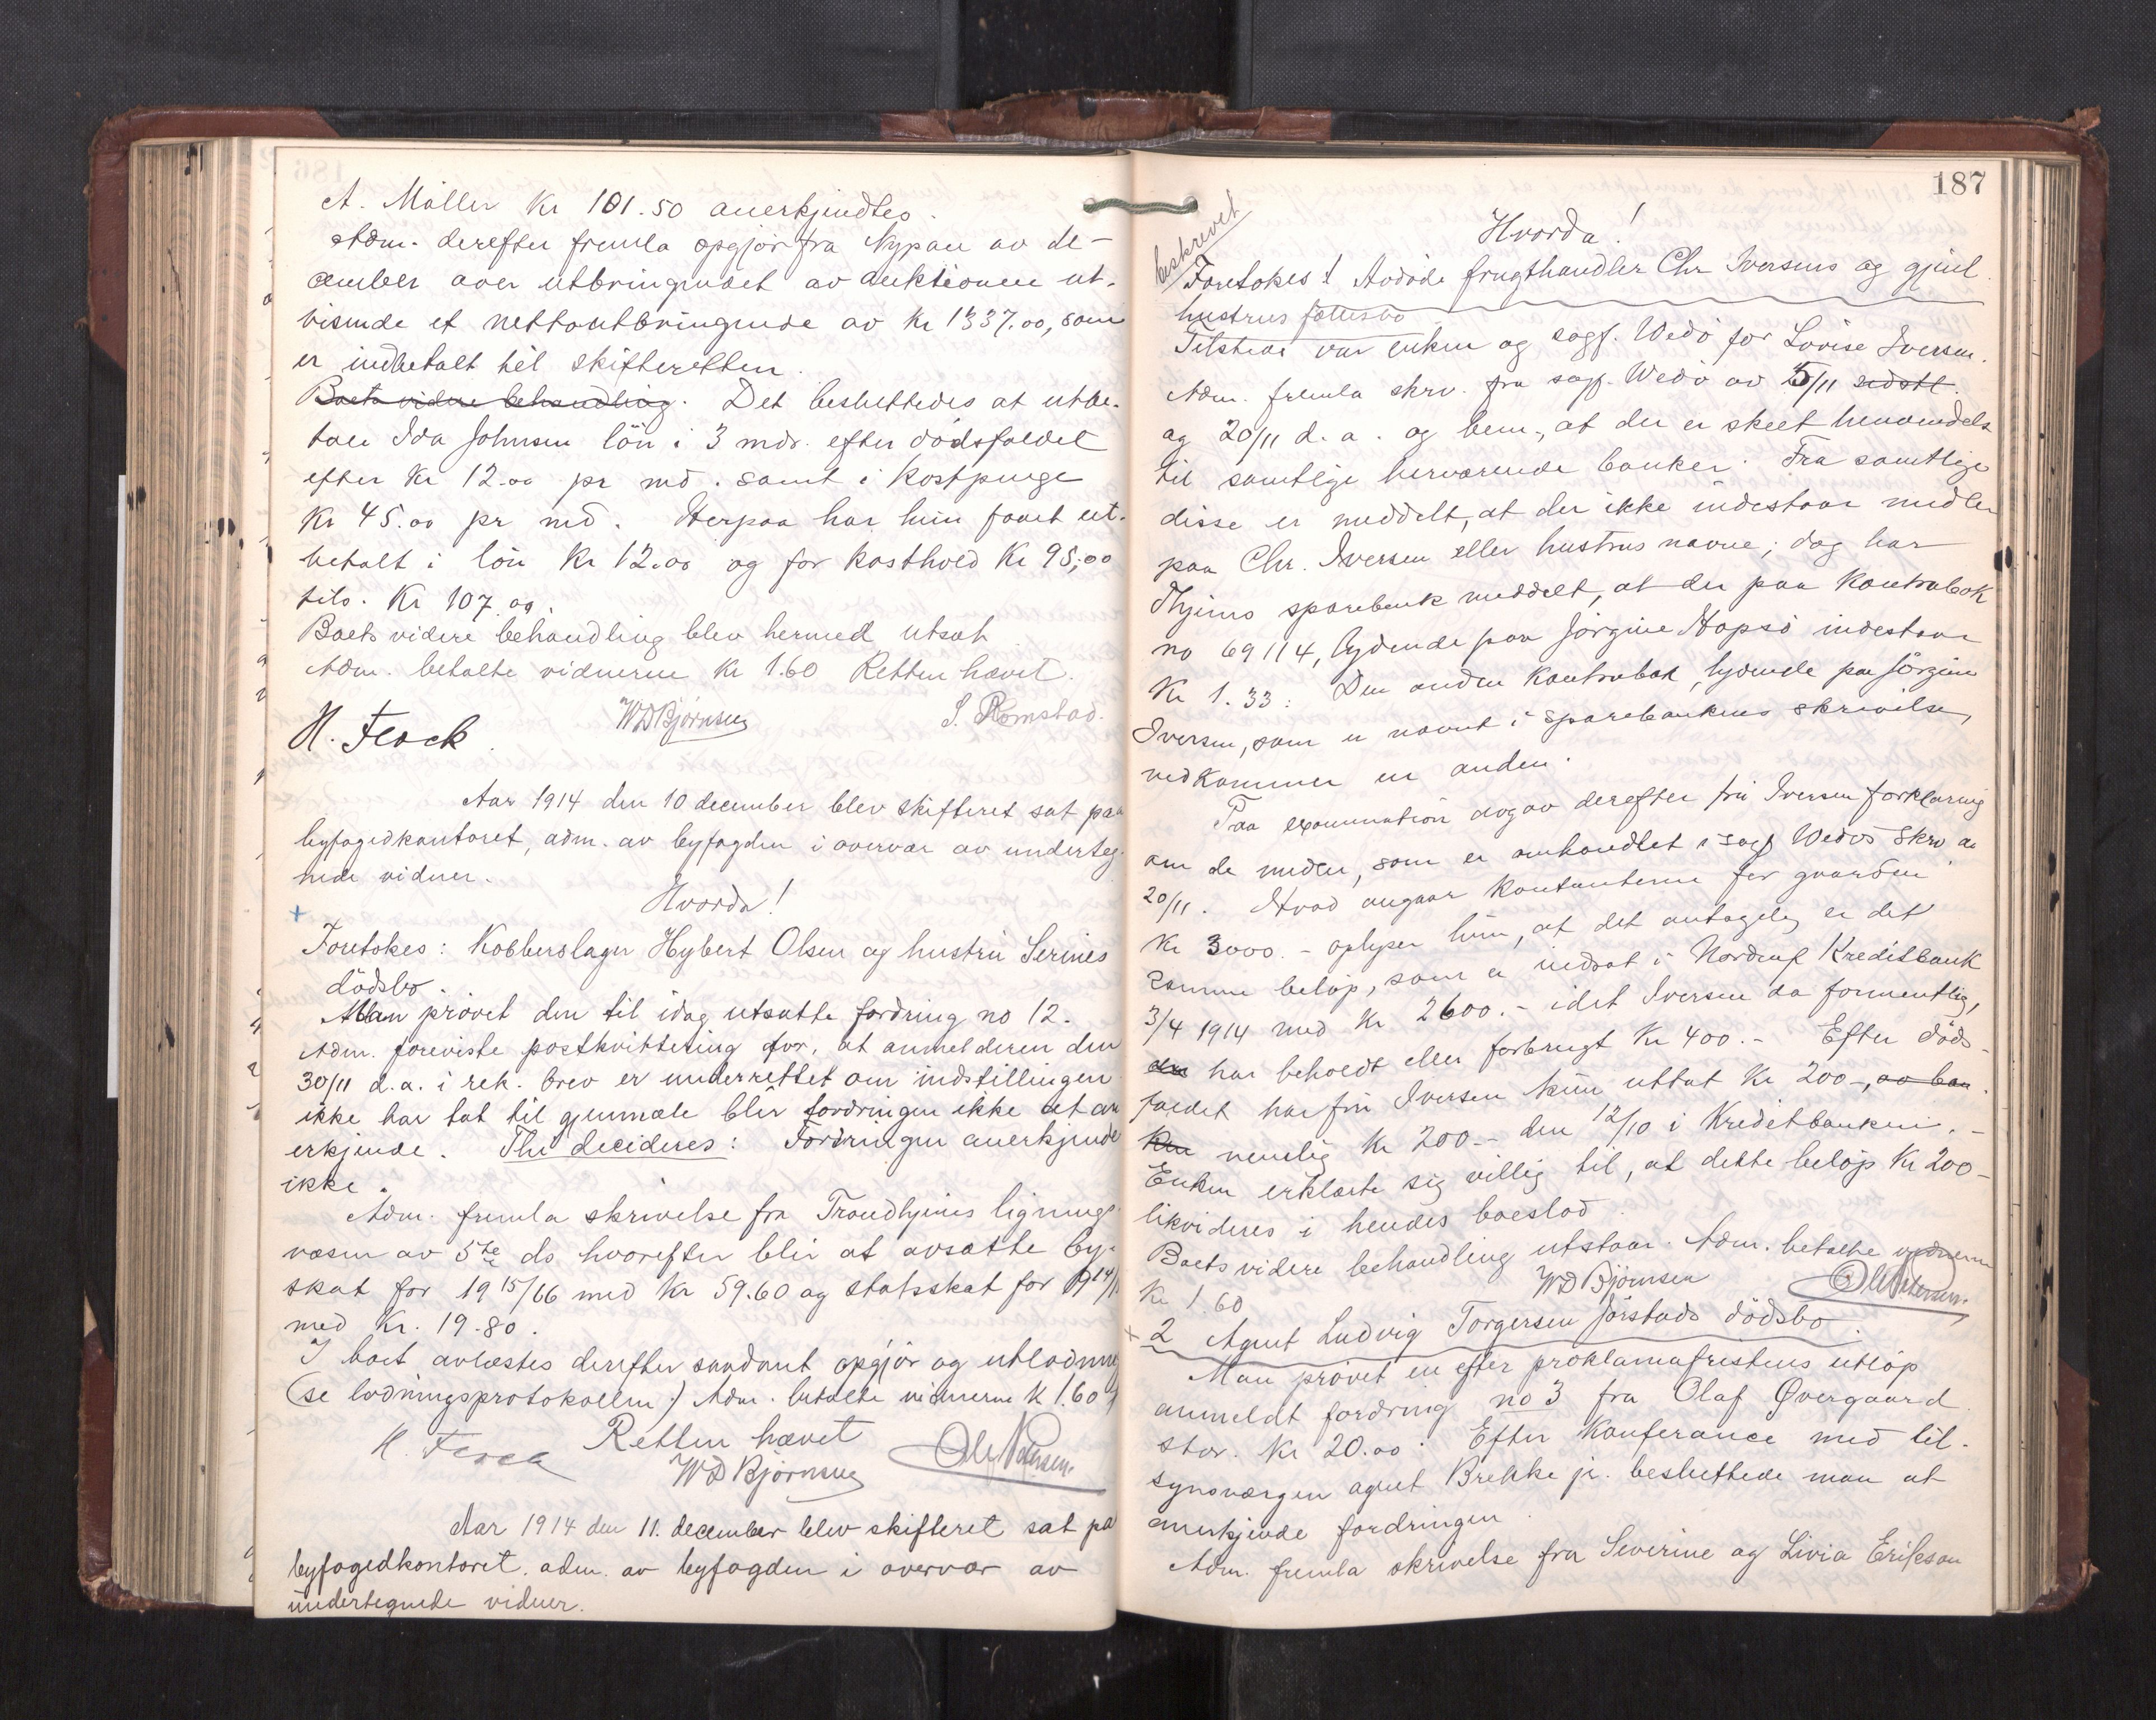 A. Möller Kr 101.50 anerkjendtes.
Adm. derefter fremla opgjör fra Nypan av de-
cember over utbringendet av auktionen ut-
visende et nettoutbringende av Kr 1337.00, som
er indbetalt til skifteretten.
Boets videre behandling. Det besluttedes at utbe-
tale Ida Johnsen lön i 3 mdr. efter dödsfaldet
efter Kr 12.00 pr md. samt i kostpenge
Kr 45.00 pr md. Herpaa har hun faaet ut-
betalt i lön Kr 12.00 og for kosthold Kr 95,00
tils. Kr 107.00.
Boets videre behandling blev hermed utsat
Adm. betalte vidnerne Kr 1.60 Retten hævet.
H. Flock. WDBjörnsen S. Romstad.
Aar 1914 den 10 december blev skifteret sat paa
byfogedkontoret, adm. av byfogden i overvær av underteg-
nede vidner.
Hvorda!
+
Foretokes: Kobberslager Hybert Olsen og hustru Serines
dödsbo.
Man prövet den til idag utsatte fordring no 12.
Adm. foreviste postkvittering for, at anmelderen den
30/11 d.a. i rek. brev er underrettet om indstillingen
ikke har tat til gjenmæle blir fordringen ikke at an
erkjende. Thi decideres: Fordringen anerkjendes
ikke.
Adm. fremla skrivelse fra Trondhjems lignings-
væsen av 5te ds hvorefter blir at avsætte by-
skat for 1915/66 med Kr 59.60 og statsskat for 1914/
med Kr. 19.80.
I boet avlæstes derefter saadant opgjör og utlodning
(se lodningsprotokollen:) Adm. betalte vidnerne K 1.60
Retten hævet
H. Flock WDBjörnsen Ole Petersen.
Aar 1914 den 11. december blev skifteret sat paa
byfogedkontoret. adm. av byfogden i overvær av
undertegnede vidner.
187
beskrevet
Hvorda!
Foretokes 1 Avdöde frugthandler Chr Iversens og gjenl.
hustrus fællesbo
Tilstede var enken og sagf. Wedö for Lovise Iversen.
Adm. fremla skrv. fra sagf. Wedö av 5/11 sidstl.
og 20/11 d.a. og bem., at der er skeet henvendelse
til samtlige herværende banker. Fra samtlige
disse er meddelt, at der ikke indestaar midler
paa Chr. Iversen eller hustrus navne; dog har
Thjems sparebank meddelt, at der paa Kontrabok
no 69114, lydende paa Jörgine Hopsö indestaar
Kr 1.33: Den anden Kontrabok, lydende paa Jörgine
Iversen, som er nævnt i sparebankens skrivelse,
vedkommer en anden.
Paa examination avgav derefter fru Iversen forklaring
om de midler, som er omhandlet i sagf Wedös skrv av
20/11. Hvad angaar Kontanterne for gaarden
Kr 3000.- oplyser hun, at det antagelig er det
samme belöp, som er indsat i Nordenf Kreditbank
3/4 1914 med Kr 2600.- idet Iversen da formentlig,
den har beholdt eller forbrugt Kr 400.- Efter döds-
faldet har fru Iversen kun uttat Kr 200-, av ban
ken nemlig Kr 200.- den 12/10 i Kreditbanken.-
Enken erklærte sig villig til, at dette belöp Kr 200-
likvideres i hendes boeslod.
Boets videre behandling utstaar. Adm. betalte vidnerne
Kr 1.60 WDBjörnsen Ole Petersen.
+ 2 Agent Ludvig Torgersen Jörstads dödsbo.
Man prövet en efter proklamafristens utlöp
anmeldt fordring no 3 fra Olaf Øvergaard
stor. Kr 20.00. Efter Konferance med til-
synsværgen agent Brekke jr. besluttede man at
anerkjende fordringen.
Adm. fremla skrivelse fra Severine og Livia Erikson